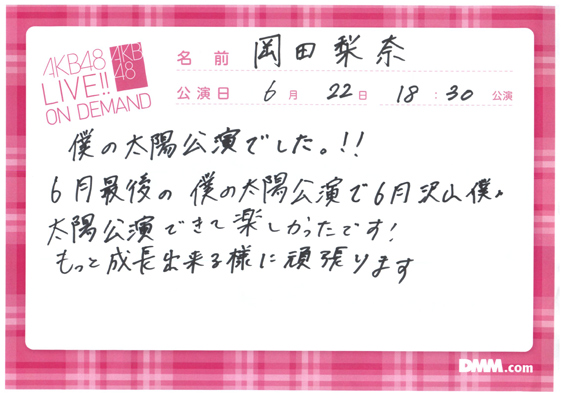 AKB48
LIVE!!
ON DEMAND
AKB
48
名前 岡田梨奈
公演日 6月 22日 18:30 公演
僕の太陽公演でした。!!
6月最後の僕の太陽公演で6月沢山僕の
太陽公演できて楽しかったです!
もっと成長出来る様に頑張ります
DMM.com